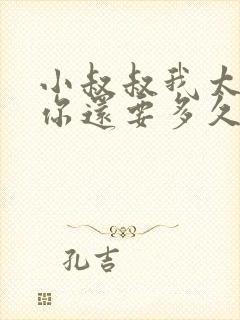 小叔叔我太
你還要多久
孔吉